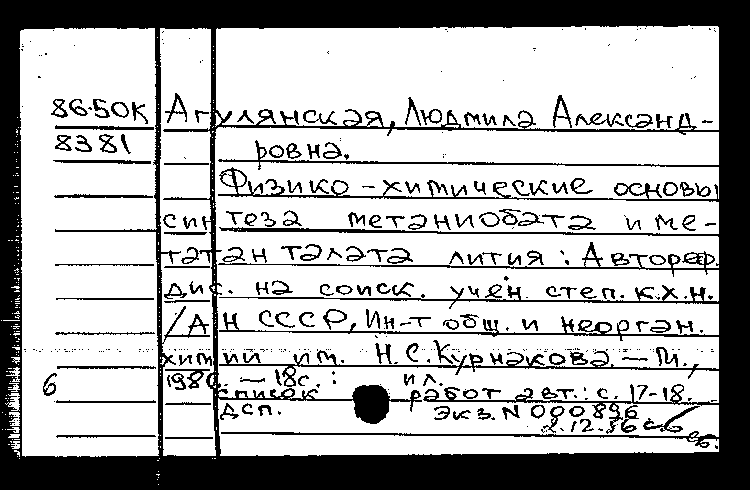 86-50К Агулянская, Людмила Александ-
8381 ровна.
Физико-химические основы
синтеза метаниобата и ме-
татанталата лития: Автореф.
дис. на соиск. учен. степ. к.х.н.
/АН СССР, Ин-т общ. и неорган.
химии им. Н.С.Курнакова. — М.,
6 1986. — 18с.: ил.
список работ авт.: с. 17-18.
ДСП. Экз. N 000896
2.12.86 с.б